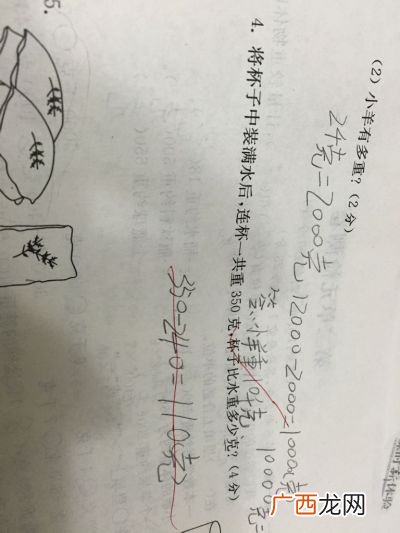 (2) 小羊有多重？(2分)
2千克=2000克 12000-2000=10000克 10000克=
答:小羊重10千克
4. 将杯子中装满水后,连杯一共重350克,杯子比水重多少克？(4分)
350-240=110(克)
5.
广西龙网